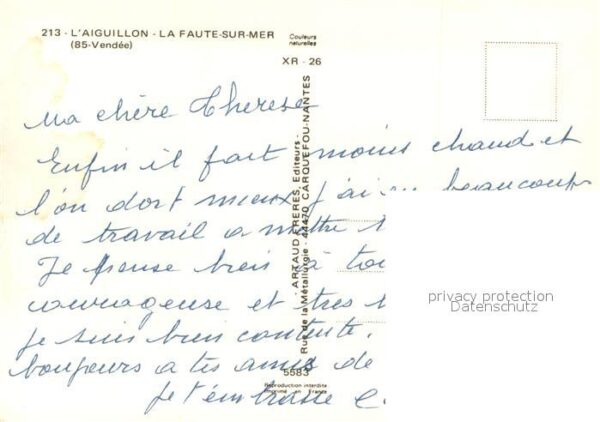 213 - L'AIGUILLON - LA FAUTE-SUR-MER
(85-Vendée)
Couleurs
naturelles
XR - 26
Ma chère Therese
Enfin il fait moins chaud et
l'on dort mieux j'ai beaucoup
de travail a mettre
Je pense bien à to
courageuse et tres
je suis bien contente.
bonjours a tes amis de
je t'embrasse
ARTAUD FRERES, Editeurs -
Rue de la Métallurgie - 44470 CARQUEFOU-NANTES
5583
Reproduction interdite
Imprimé en France
privacy protection
Datenschutz